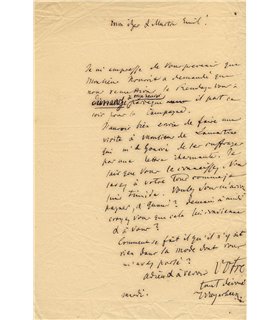 mon cher & 
Je m'empresse de vous prévenir que
Monsieur Nourrit a demandé que
nous remettions le rendez vous à
 parce que il part ce
soir pour la Campagne.
J'aurois bien envie de faire une
visite à Monsieur de Lamartine
qui m'a honoré de son suffrage
par une lettre charmante. Je
sais que vous le connaissez. Vous
savez à votre tour comme je
suis timide. Voulez vous m'accom
pagner, & quand? Demain à midi
croyez vous que cela lui convienne
& à vous?
Comment se fait il qu'il n'y ait
rien dans la mode dont vous
m'avez parlé?
adieu & à revoir Votre
tout dévoué
Meyerbeer
mardi.